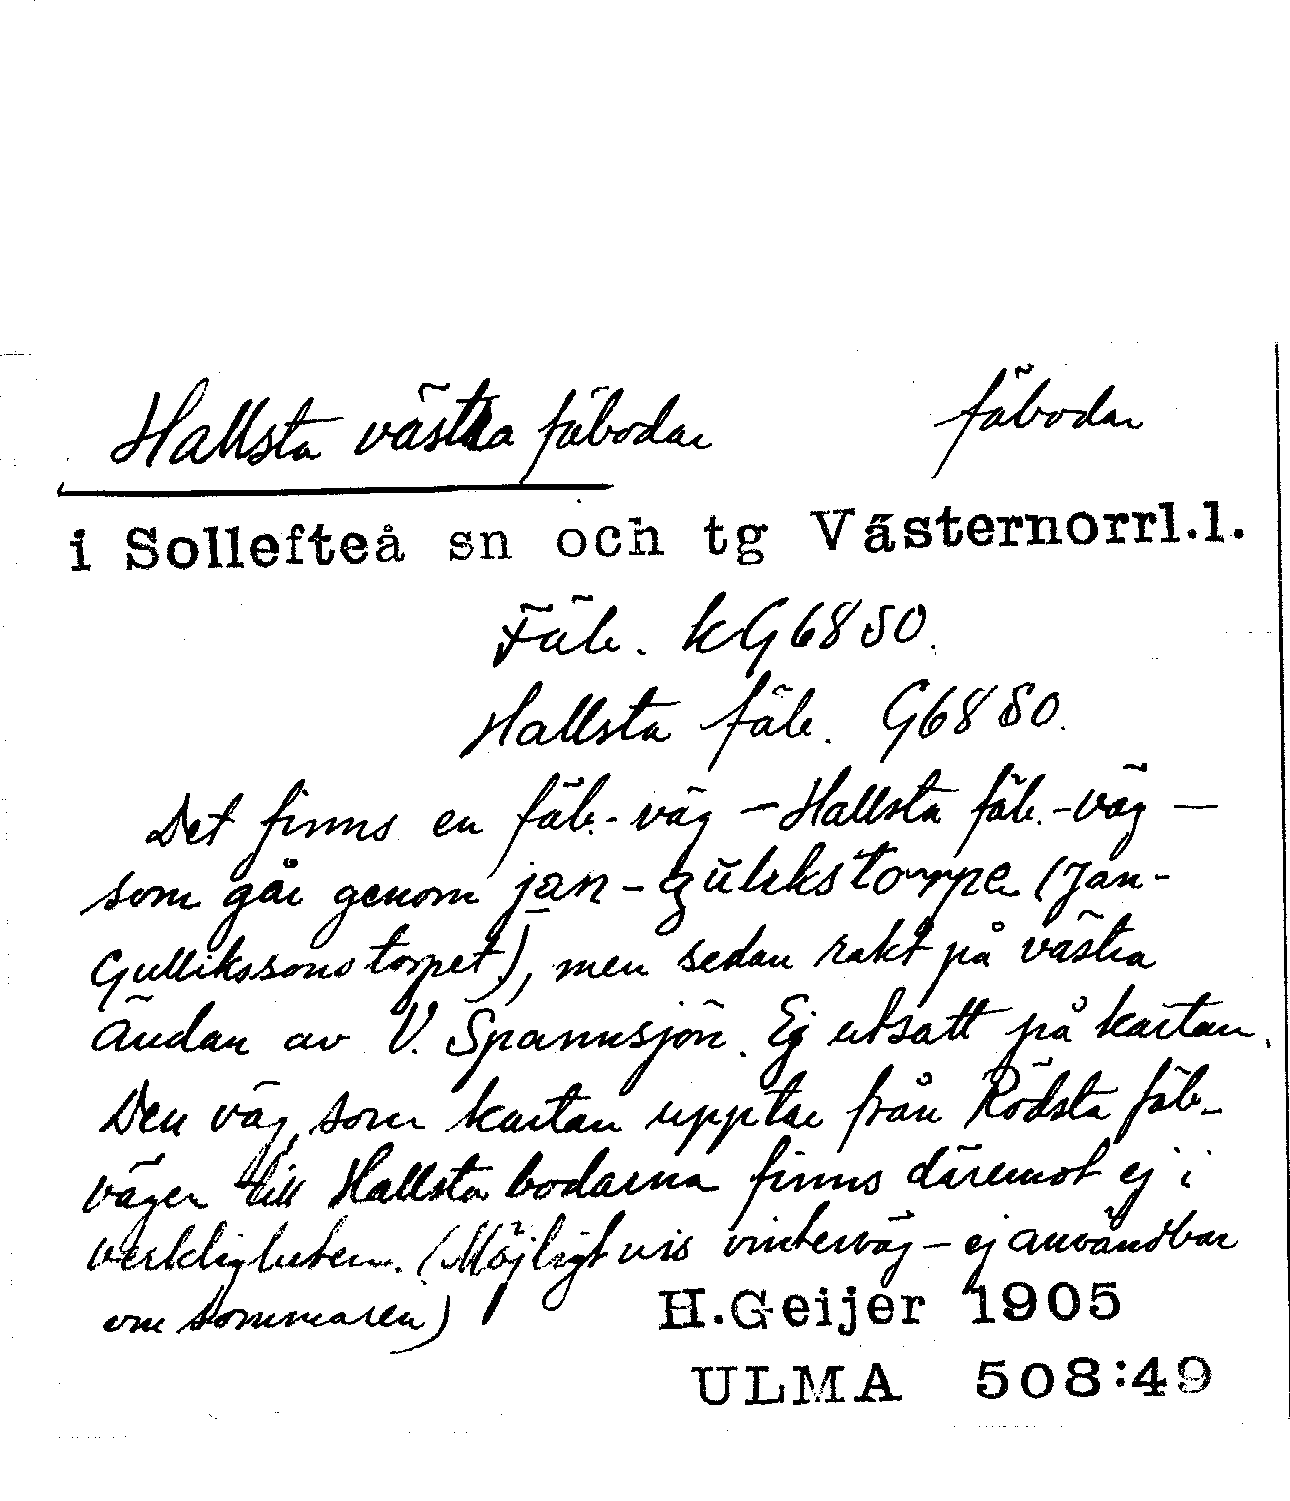 Hallsta västra fäbodar fäbodar
i Sollefteå sn och tg Västernorrl.l.
Fäb. KG6880.
Hallsta fäb. G6880.
Det finns en fäb.-väg – Hallsta fäb.-väg –
som går genom jan-gulikstorpe (Jan-
Gullikssonstorpet), men sedan rakt på västra
ändan av V. Spannsjön. Ej utsatt på kartan.
Den väg, som kartan upptar från Rödsta fäb-
vägen till Hallsta bodarna finns däremot ej i
verkligheten. (Möjligtvis vinterväg – ej användbar
om sommaren)
H.Geijer 1905
ULMA 508:49